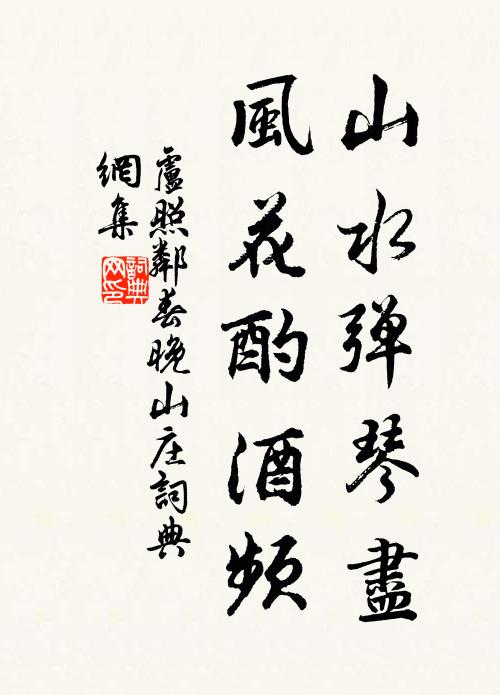 山水弹琴盡
風花酌酒頻
盧照鄰春晚山庄詞典
網集
詞典網印